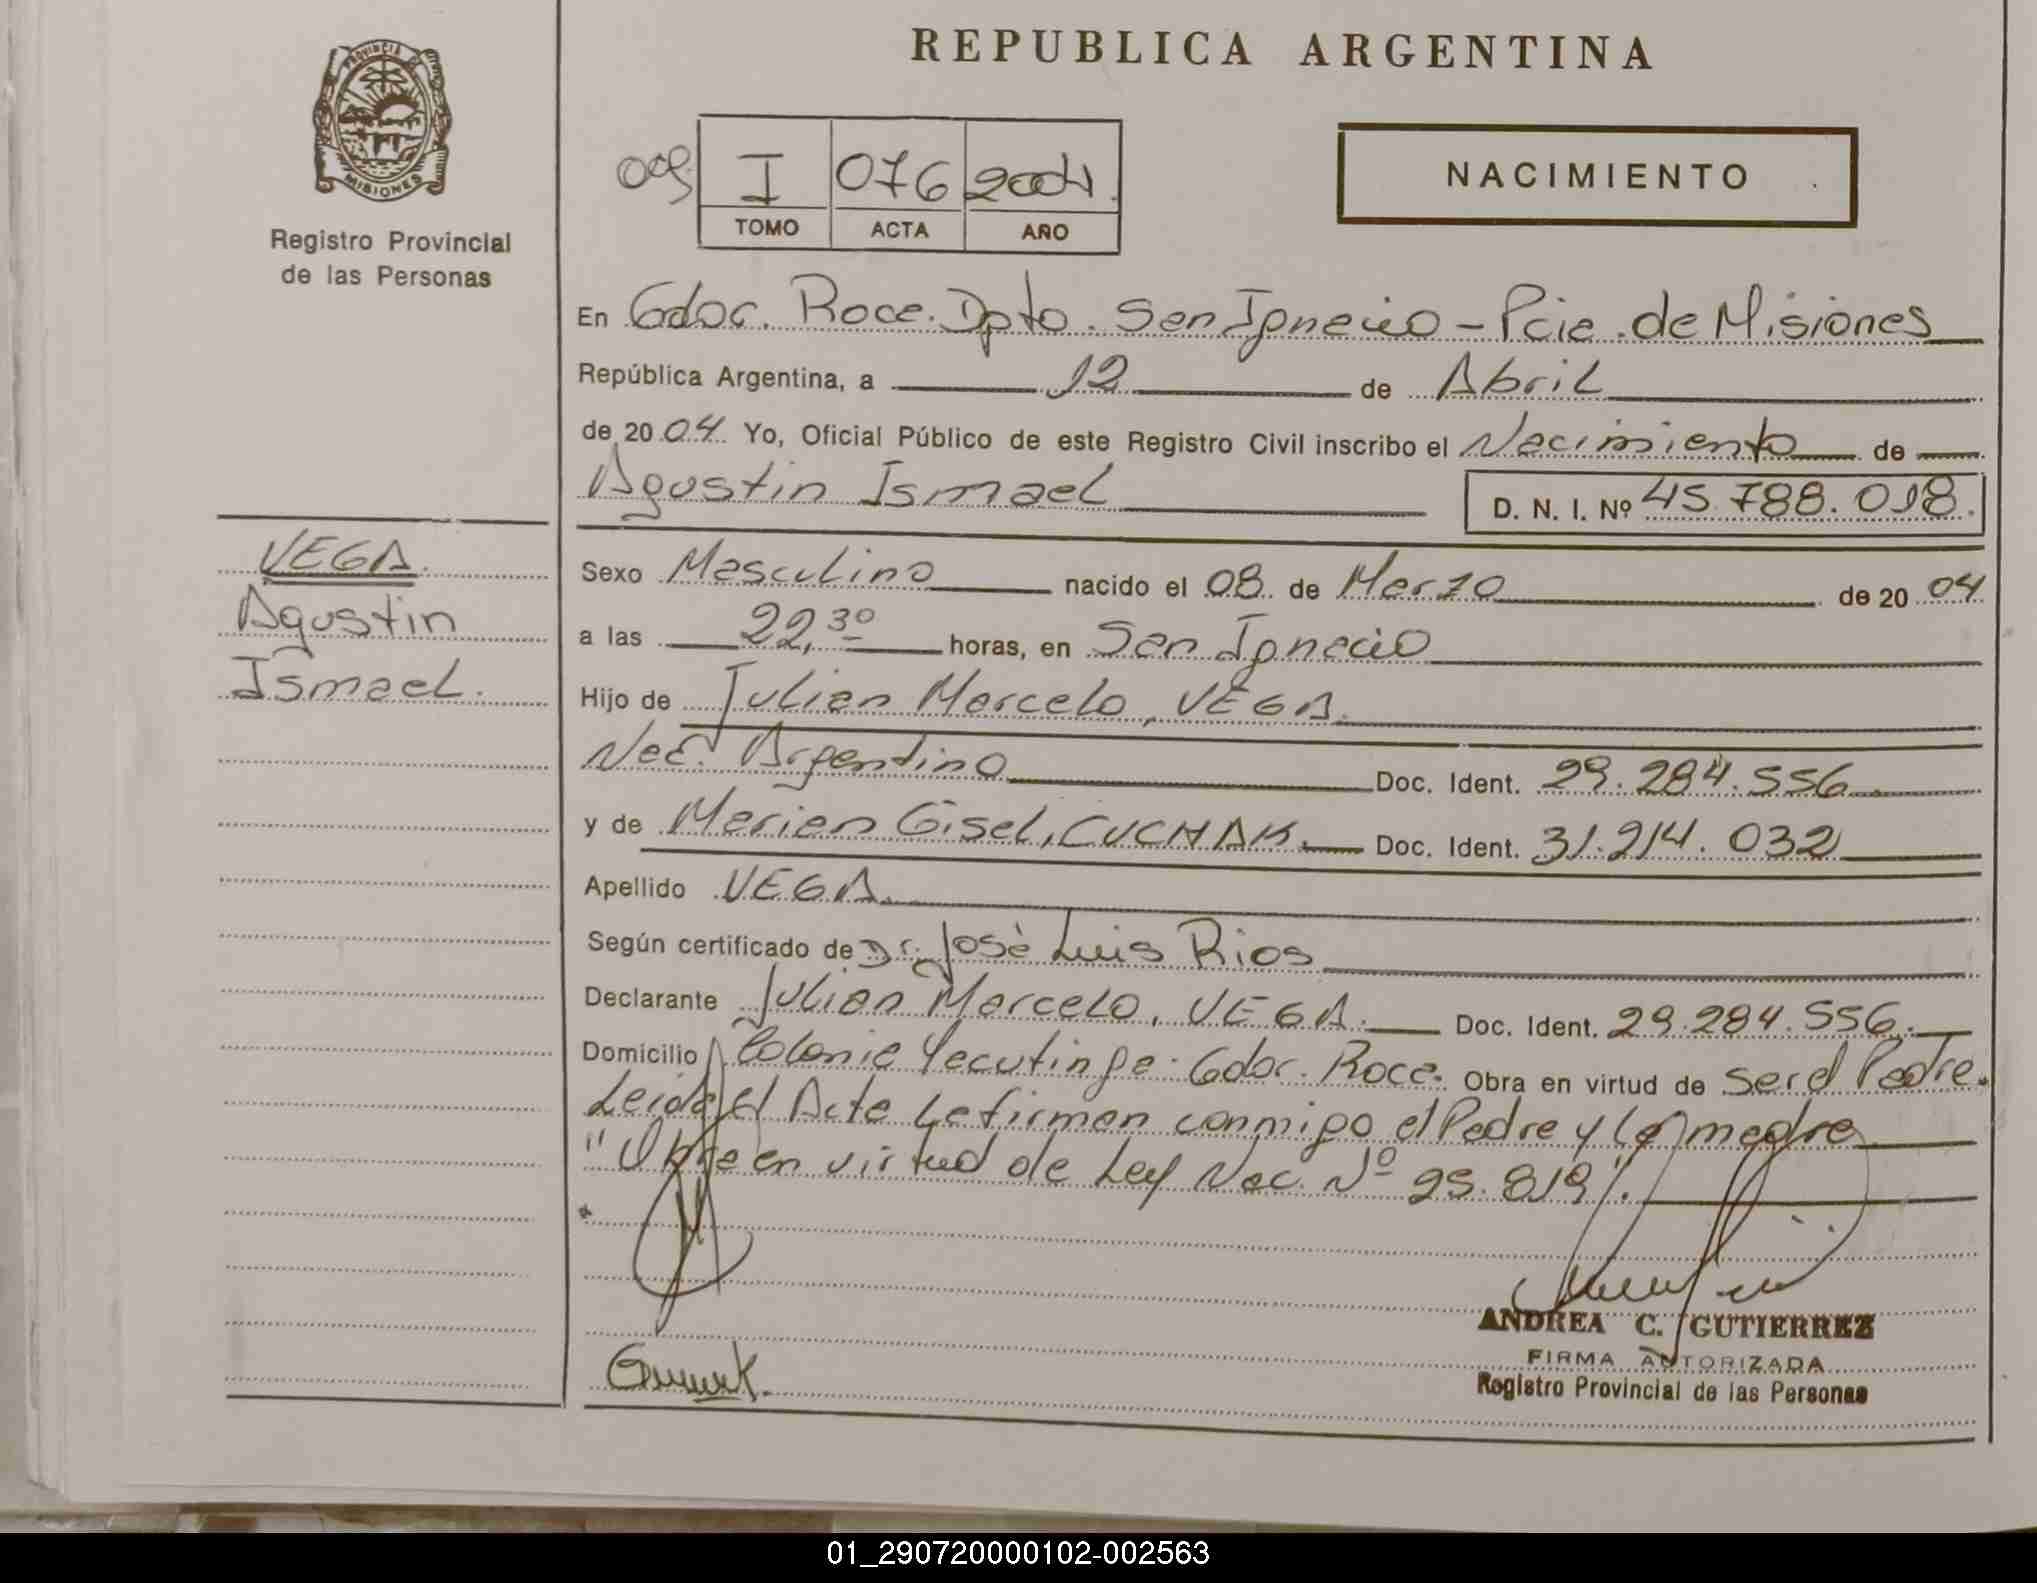 REPUBLICA ARGENTINA
PROVINCIA DE
MISIONES
Registro Provincial
de las Personas
009 I 076 2004.
TOMO ACTA AÑO
NACIMIENTO
En Gdor. Roca. Dpto. San Ignacio - Pcia. de Misiones
República Argentina, a 12 de Abril
de 2004 Yo, Oficial Público de este Registro Civil inscribo el Nacimiento de
Agustin Ismael D. N. I. Nº 45.788.018.
VEGA.
Agustin
Ismael.
Sexo Masculino nacido el 08 de Marzo de 2004
a las 22,30 horas, en San Ignacio
Hijo de Julian Marcelo, VEGA.
Nac. Argentino Doc. Ident. 29.284.556
y de Marian Gisel, CUCHAK. Doc. Ident. 31.214.032
Apellido VEGA.
Según certificado de Dr. José Luis Rios
Declarante Julian Marcelo, VEGA. Doc. Ident. 29.284.556.
Domicilio Colonia Yacutinga. Gdor. Roca. Obra en virtud de ser el Padre.
Leida el Acta la firman conmigo el Padre y la madre
"Obra en virtud de Ley Nac. Nº 25.819".
ANDREA C. GUTIERREZ
FIRMA AUTORIZADA
Registro Provincial de las Personas
01_290720000102-002563